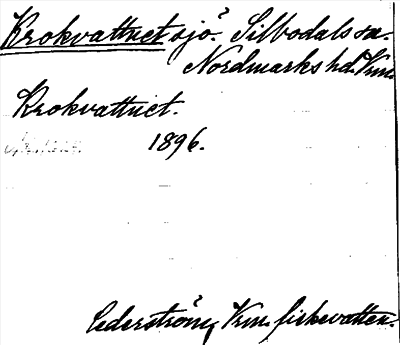 Krokvattnet sjö? Silbodals sn.
Nordmarks hd. Vrm.
Krokvattnet.
1896.
Cederström, Vrm. fiskevatten.